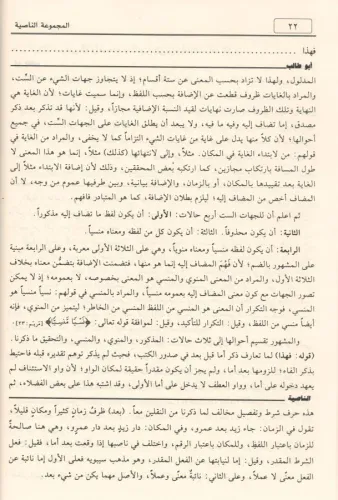 ٢٢
المجموعة الناصية
فهذا
أبو طالب
المدلول، ولهذا لا تزاد بحسب المعنى عن ستة أقسام؛ إذ لا يتجاوز جهات الشيء عن السِّت،
والمراد بالغايات ظروف قطعت عن الإضافة بحسب اللفظ، وإنما سميت غايات؛ لأن الغاية هي
النهاية وتلك الظروف صارت نهايات لقيد النسبة الإضافية مجازاً، وقيل: لأنها قد تذكر بعد ذكر
مصدق، إما تضاف إليه وفيه ما فيه، ولا يبعد أن يطلق الغايات على الجهات السّت، في جميع
أحوالها؛ لأن كلاً منها يدل على غاية من غايات الشيء التزاماً كما لا يخفى، والمراد من الغاية في
قولهم: من لابتداء الغاية في المكان. مثلاً، وإلى لانتهائها (كذلك) مثلاً، إنما هو هذا المعنى لا
طول المسافة بارتكاب مجازين، كما ارتكبه بعض المحققين، وذلك لأن إضافة الابتداء مثلاً إلى
الغاية بعد تقييدها بالمكان، أو بالزمان، والإضافة بيانية، وبين طرفيها عموم من وجه، لا أن
المضاف أخص من المضاف إليه؛ ليلزم بطلان الإضافة، كما هو المتبادر فافهم.
ثم اعلم أن للجهات الست أربع حالات: الأولى: أن يكون لفظ ما تضاف إليه مذكوراً.
الثانية: أن يكون محذوفاً. الثالثة: أن يكون كل من لفظه ومعناه منسياً.
الرابعة: أن يكون لفظه منسياً ومعناه منوياً، وهي على الثلاثة الأولى معربة، وعلى الرابعة مبنية
على المشهور بالضم؛ لأن فَهْمَ المضاف إليه إنما هو منها، فتضمنت الإضافة بتضمُّن معناه بخلاف
الثلاثة الأول، والمراد من المعنى المنوي والمنسي هو المعنى بخصوصه، لا بعمومه؛ إذ لا يمكن
تصور الجهات مع كون معنى المضاف إليه بعمومه منسياً، والمراد بالمنسي في قولهم: نسياً منسياً هو
المنسي، فوجه التكرار أن المعنى هو المنسي من اللفظ المنسي من الخاطر؛ ليتميز من المنوي، فإنه
أيضاً منسي من اللفظ، وقيل: التكرار للتأكيد، وقيل: لموافقة قوله تعالى: ﴿نَسْيًا مَّنسِيًّا﴾ [مريم: ٢٣].
والمشهور تقسيم أحوالها إلى ثلاث حالات: المذكور، والمنوي، والمنسي، والتحقيق ما ذكرنا.
(قوله: فهذا) لما تعارف ذكر أما قبل بعد في صدور الكتب، فحيث لم يذكر توهم تقديره فلاحتيط
بذكر الفاء؛ للزومها بعد أما، ولم يجز أن يكون مقدراً حقيقة لمكان الواو؛ لأن واو الاستئناف لم
يعهد دخوله على أما، وواو العطف لا يدخل على أما الأولى، وقد اشتبه هذا على بعض الفضلاء، ثم
الناصية
هذه حرف شرط وتفصيل مخالف لما ذكرنا من النقلين معاً. (بعد) ظرفُ زمانٍ كثيراً ومكانٍ قليلاً،
تقول في الزمان: جاء زيد بعد عمرو، وفي المكان: دار زيدٍ بعد دار عمرو، وهي هنا صالحةٌ
للزمان باعتبار اللفظ، وللمكان باعتبار الرقم، واختلف في ناصبها إذا وقعت بعد أما، فقيل: فعل
الشرط المقدر، وقيل: إما لنيابتها عن الفعل المقدر، وهو مذهب سيبويه فعلى الأول إما نائبة عن
الفعل معنىً لا عملاً، وعلى الثاني: نائبةٌ معنىً وعملاً، والأصل مهما يكن من شيء بعد.